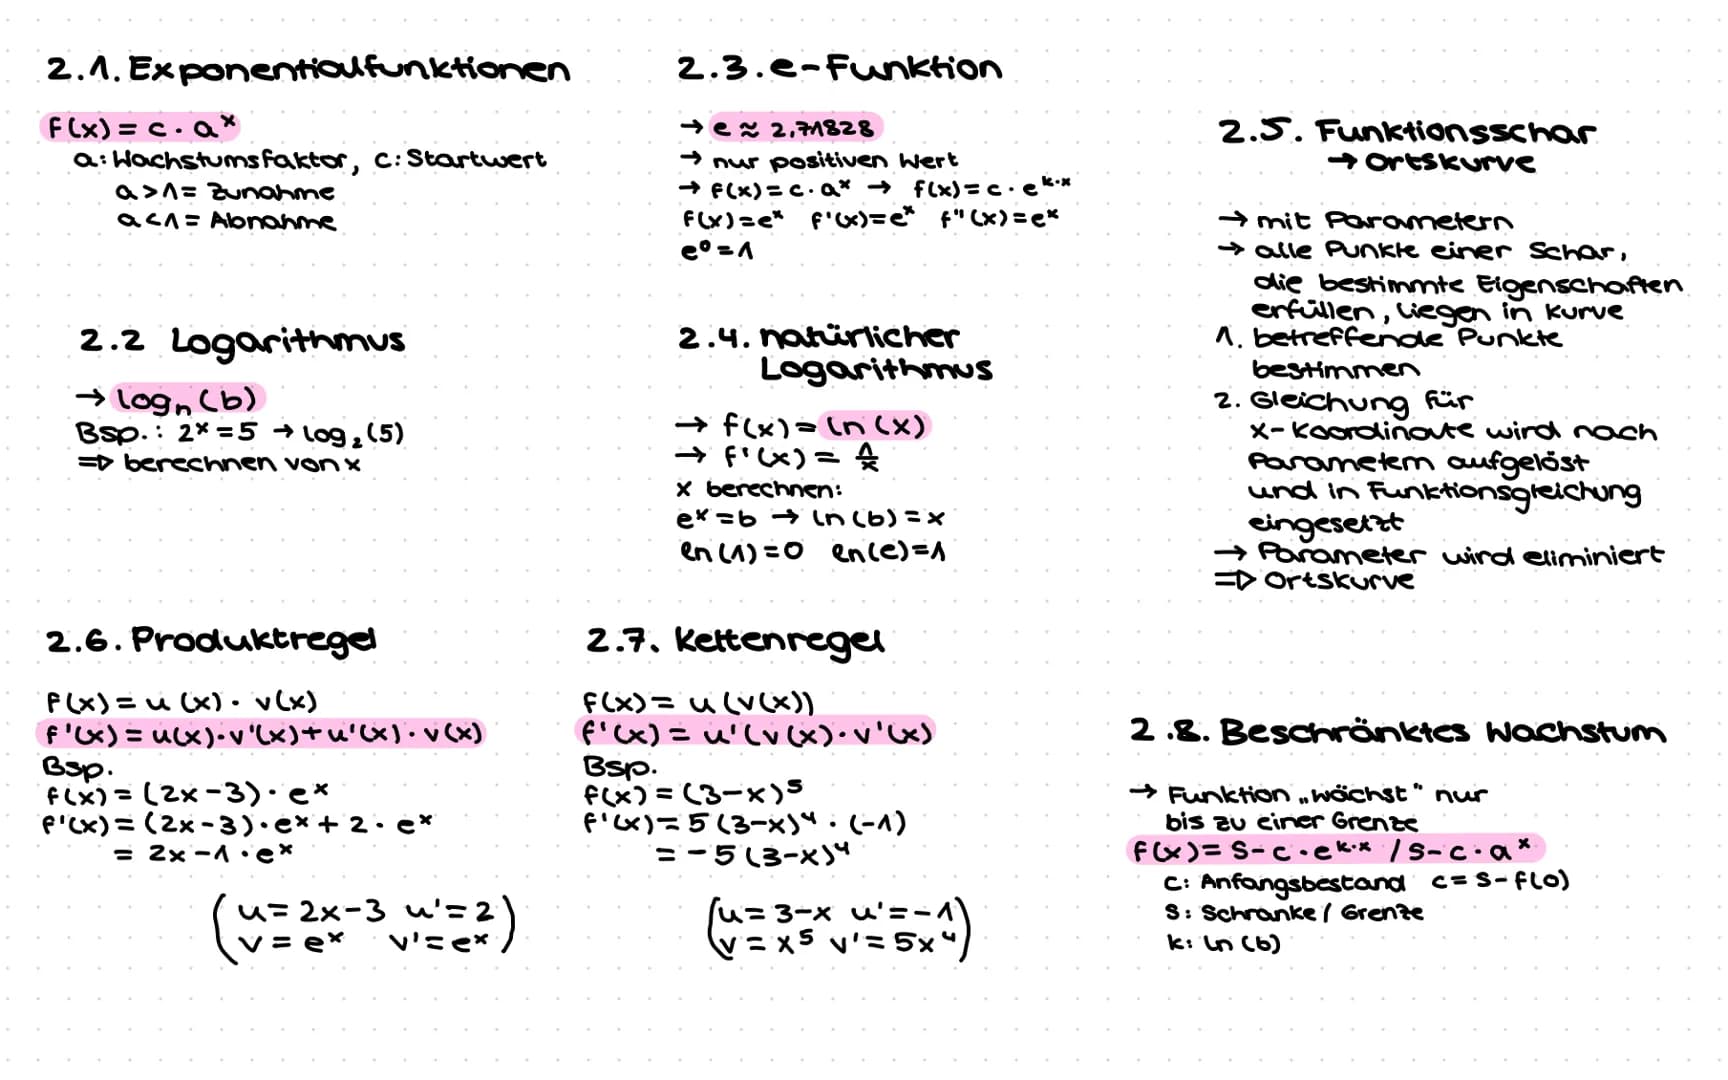 2.1. Exponentialfunktionen
f(x) = c · aˣ
a: Wachstumsfaktor, c: Startwert
a > 1 = Zunahme
a < 1 = Abnahme
2.2 Logarithmus
→ logₙ(b)
Bsp.: 2ˣ = 5 → log₂(5)
⇒ berechnen von x
2.3. e-Funktion
→ e ≈ 2,71828
→ nur positiven Wert
→ f(x) = c · aˣ → f(x) = c · eᵏ˙ˣ
f(x) = eˣ f'(x) = eˣ f''(x) = eˣ
e⁰ = 1
2.4. natürlicher
Logarithmus
→ f(x) = ln(x)
→ f'(x) = 1/x
x berechnen:
eˣ = b → ln(b) = x
ln(1) = 0 ln(e) = 1
2.5. Funktionsschar
→ Ortskurve
→ mit Parametern
→ alle Punkte einer Schar,
die bestimmte Eigenschaften
erfüllen, liegen in Kurve
1. betreffende Punkte
bestimmen
2. Gleichung für
x-Koordinate wird nach
Parametern aufgelöst
und in Funktionsgleichung
eingesetzt
→ Parameter wird eliminiert
⇒ Ortskurve
2.6. Produktregel
f(x) = u(x) · v(x)
f'(x) = u(x) · v'(x) + u'(x) · v(x)
Bsp.
f(x) = (2x - 3) · eˣ
f'(x) = (2x - 3) · eˣ + 2 · eˣ
= 2x - 1 · eˣ
(u = 2x - 3 u' = 2
v = eˣ v' = eˣ)
2.7. Kettenregel
f(x) = u(v(x))
f'(x) = u'(v(x) · v'(x)
Bsp.
f(x) = (3 - x)⁵
f'(x) = 5(3 - x)⁴ · (-1)
= -5(3 - x)⁴
(u = 3 - x u' = -1
v = x⁵ v' = 5x⁴)
2.8. Beschränktes Wachstum
→ Funktion „wächst" nur
bis zu einer Grenze
f(x) = S - c · eᵏ˙ˣ / S - c · aˣ
c: Anfangsbestand c = S - f(0)
S: Schranke / Grenze
k: ln(b)